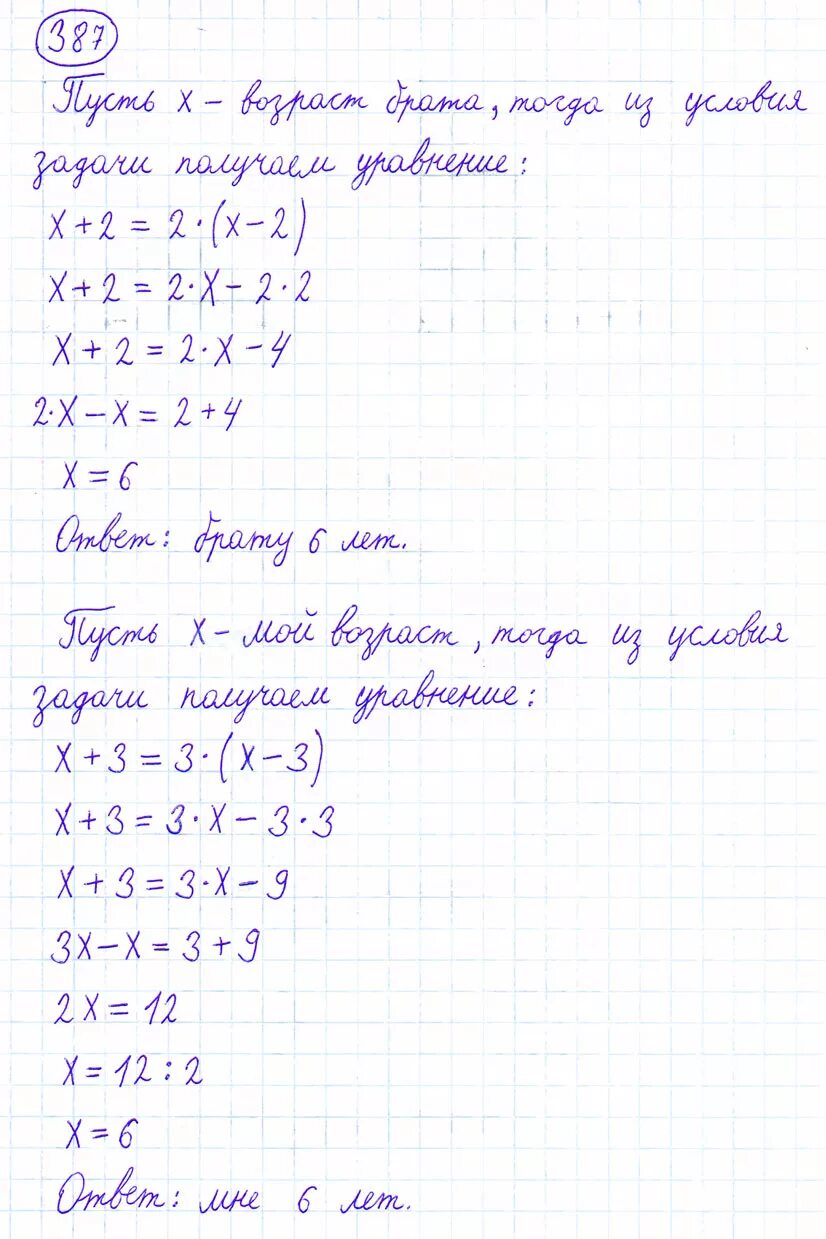 387
Пусть x – возраст брата, тогда из условия
задачи получаем уравнение:
x + 2 = 2·(x – 2)
x + 2 = 2·x – 2·2
x + 2 = 2·x – 4
2·x – x = 2 + 4
x = 6
Ответ: брату 6 лет.
Пусть x – мой возраст, тогда из условия
задачи получаем уравнение:
x + 3 = 3·(x – 3)
x + 3 = 3·x – 3·3
x + 3 = 3·x – 9
3x – x = 3 + 9
2x = 12
x = 12 : 2
x = 6
Ответ: мне 6 лет.